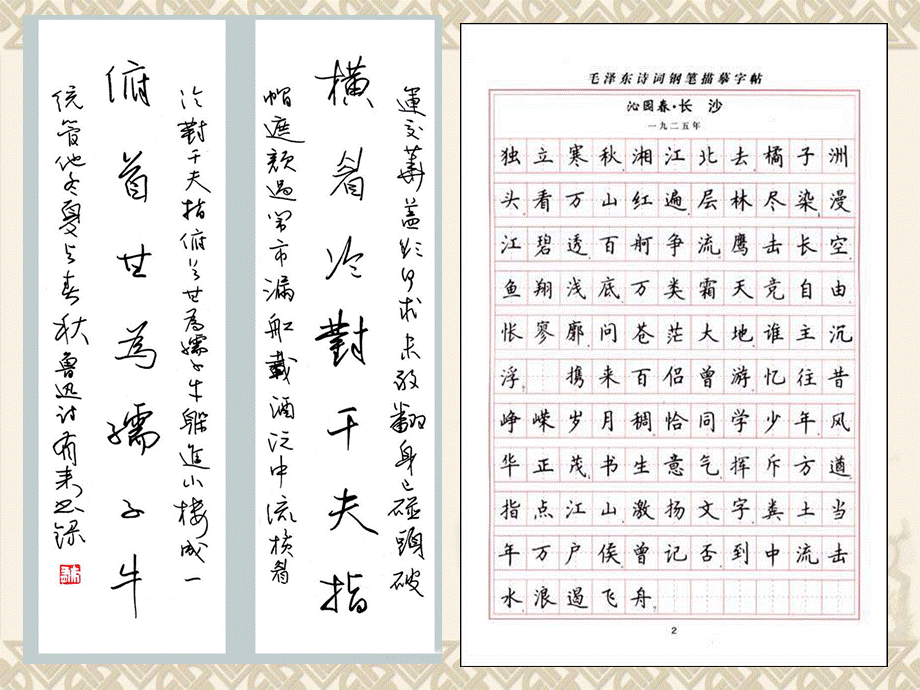 運交華蓋欲何求未敢翻身已碰頭破
橫眉冷對千夫指
帽遮顏過鬧市漏船載酒泛中流橫眉
冷對千夫指俯首甘為孺子牛躲進小樓成一
俯首甘為孺子牛
统管他冬夏与春秋 鲁迅诗
毛泽东诗词钢笔描摹字帖
沁园春·长 沙
一九二五年
独立寒秋湘江北去橘子洲
头看万山红遍层林尽染漫
江碧透百舸争流鹰击长空
鱼翔浅底万类霜天竞自由
怅寥廓问苍茫大地谁主沉
浮　携来百侣曾游忆往昔
峥嵘岁月稠恰同学少年风
华正茂书生意气挥斥方遒
指点江山激扬文字粪土当
年万户侯曾记否到中流击
水浪遏飞舟
2